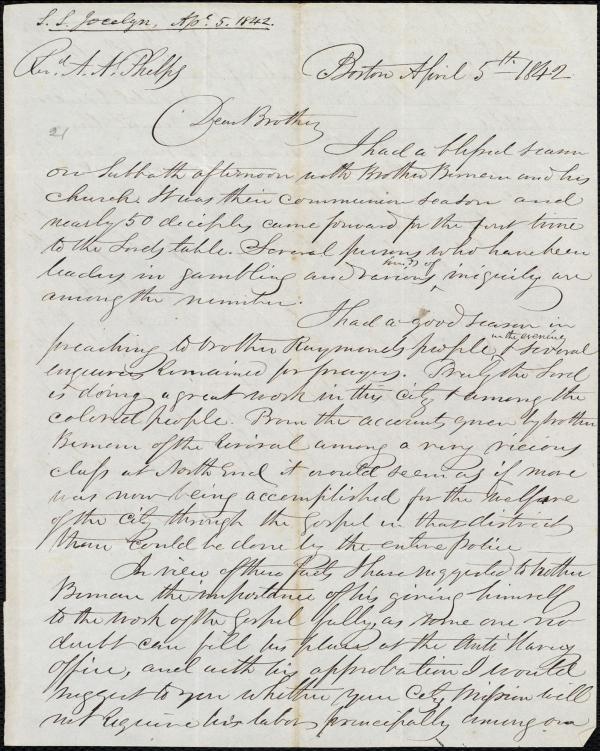 S. S. Jocelyn, Apr. 5. 1842.
Revd A. A. Phelps
Boston April 5th 1842
21
Dear Brother
I had a blessed season
on Sabbath afternoon with Brother Beman and his
church. It was their communion season and
nearly 50 deciples came forward for the first time
to the Lords table. Several persons who have been
leaders in gambling and various kinds of iniquity are
among the number.
I had a good season in
preaching to brother Raymonds people in the evening & several
enquirers remained for prayers. Truly the Lord
is doing a great work in this city & among the
colored people. From the accounts given by brother
Beman of the revival among a very vicious
class at North End it would seem as if more
was now being accomplished for the welfare
of the city through the Gospel in that district
than could be done by the entire police
In view of these facts I have suggested to brother
Beman the importance of his giving himself
to the work of the Gospel fully, as some one no
doubt can fill his place at the Anti Slavery
office, and with his approbation I would
suggest to you whether your City Mission will
not require his labors principally among our